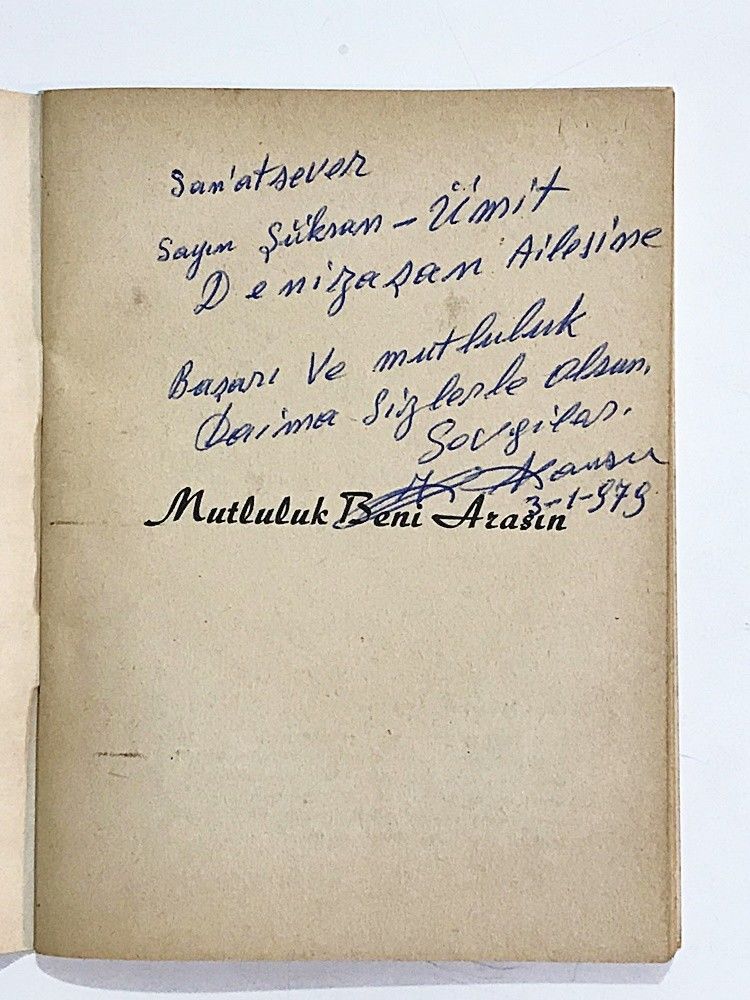 San'atsever
Sayın Şükran - Ümit
Denizaşan Ailesine
Başarı Ve mutluluk
Daima Sizlerle olsun.
Sevgiler.
Kansu
3-1-979
Mutluluk Beni Arasın